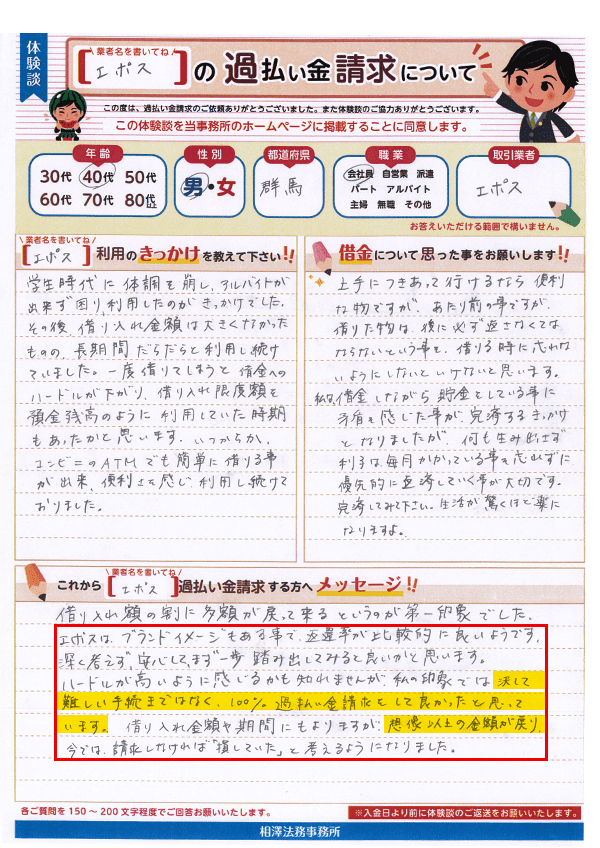 体験談
業者名を書いてね
[エポス]の過払い金請求について
この度は、過払い金請求のご依頼ありがとうございました。また体験談のご協力ありがとうございます。
この体験談を当事務所のホームページに掲載することに同意します。
年齢
30代 40代 50代
60代 70代 80代以上
性別
男・女
都道府県
群馬
職業
会社員 自営業 派遣
パート アルバイト
主婦 無職 その他
取引業者
エポス
お答えいただける範囲で構いません。
業者名を書いてね
[エポス]利用のきっかけを教えて下さい!!
学生時代に体調を崩し、アルバイトが
出来ず困り、利用したのがきっかけでした。
その後、借り入れ金額は大きくなかった
ものの、長期間だらだらと利用し続け
ていました。一度借りてしまうと借金への
ハードルが下がり、借り入れ限度額を
預金残高のように利用していた時期
もあったかと思います。いつからか、
コンビニのATMでも簡単に借りる事
が出来、便利さを感じ、利用し続けて
おりました。
借金について思った事をお願いします!!
上手につきあって行けるなら便利
な物ですが、あたり前の事ですが、
借りた物は、後に必ず返さなくては
ならないという事を、借りる時に忘れな
いようにしないといけないと思います。
私は、借金しながら貯金をしている事に
矛盾を感じた事が、完済するきっかけ
となりましたが、何も生み出さず
利子は毎月かかっている事を忘れずに
優先的に返済していく事が大切です。
完済してみて下さい。生活が驚くほど楽に
なりますよ。
業者名を書いてね
これから[エポス]過払い金請求する方へメッセージ!!
借り入れ額の割に多額が戻って来るというのが第一印象でした。
エポスは、ブランドイメージもある事で、返還率が比較的に良いようです。
深く考えず、安心して、まず一歩踏み出してみると良いかと思います。
ハードルが高いように感じるかも知れませんが、私の印象では決して
難しい手続きではなく、100%過払い金請求をして良かったと思って
います。借り入れ金額や期間にもよりますが、想像以上の金額が戻り、
今では、請求しなければ「損していた」と考えるようになりました。
各ご質問を150～200文字程度でご回答お願いいたします。
※入金日より前に体験談のご返送をお願いいたします。
相澤法務事務所